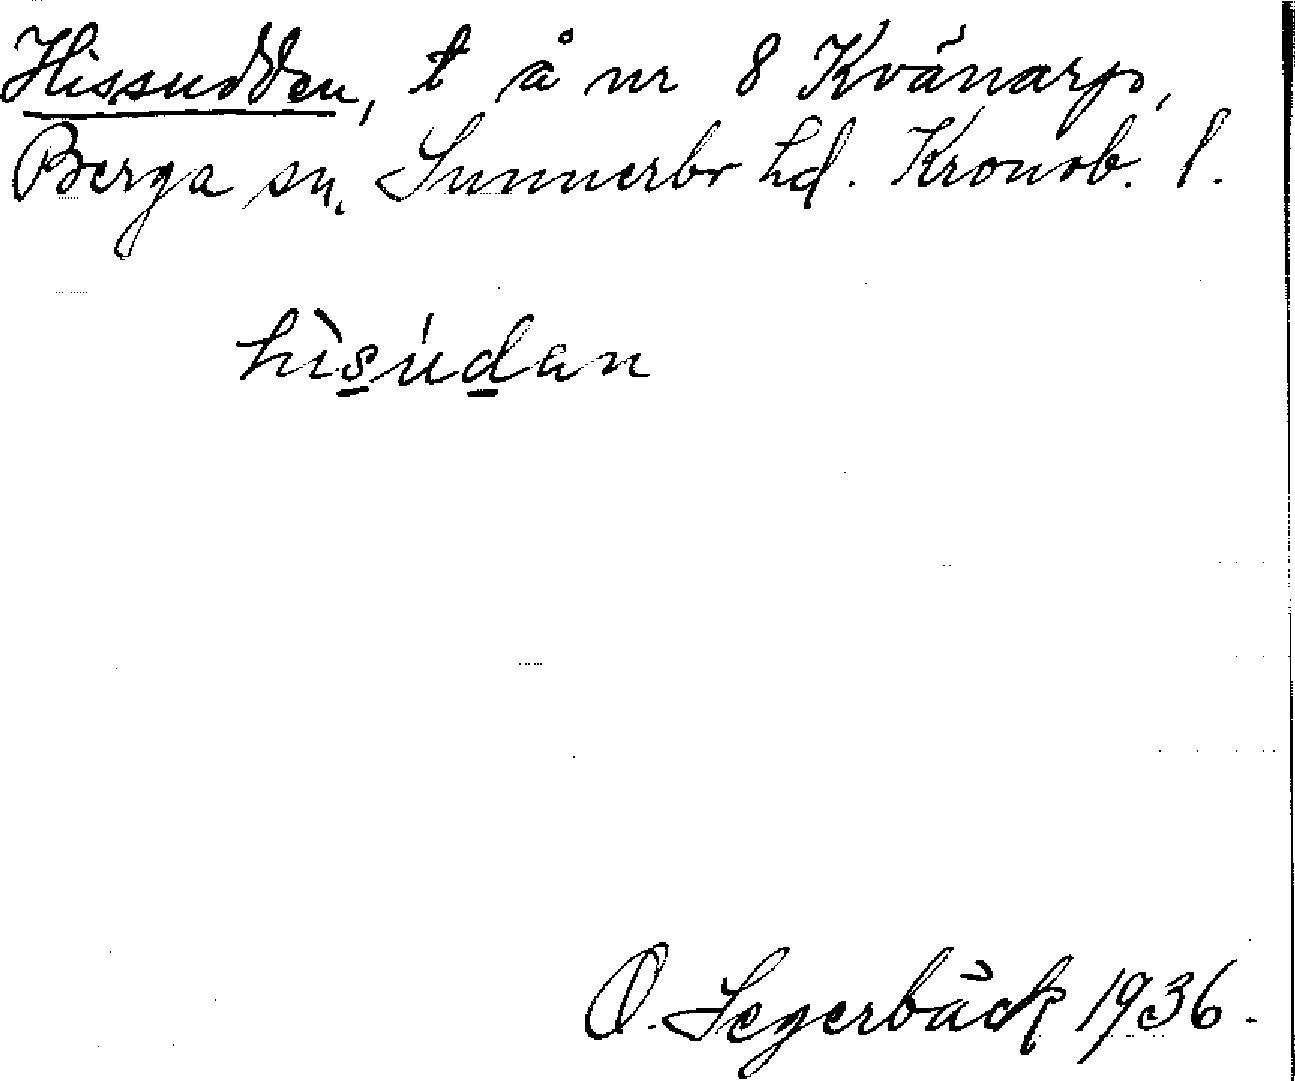 Hissudden, t å nr 8 Kvänarp,
Berga sn. Sunnerbo hd. Kronob. l.
hìs̲úd̲an
O. Segerbäck 1936.